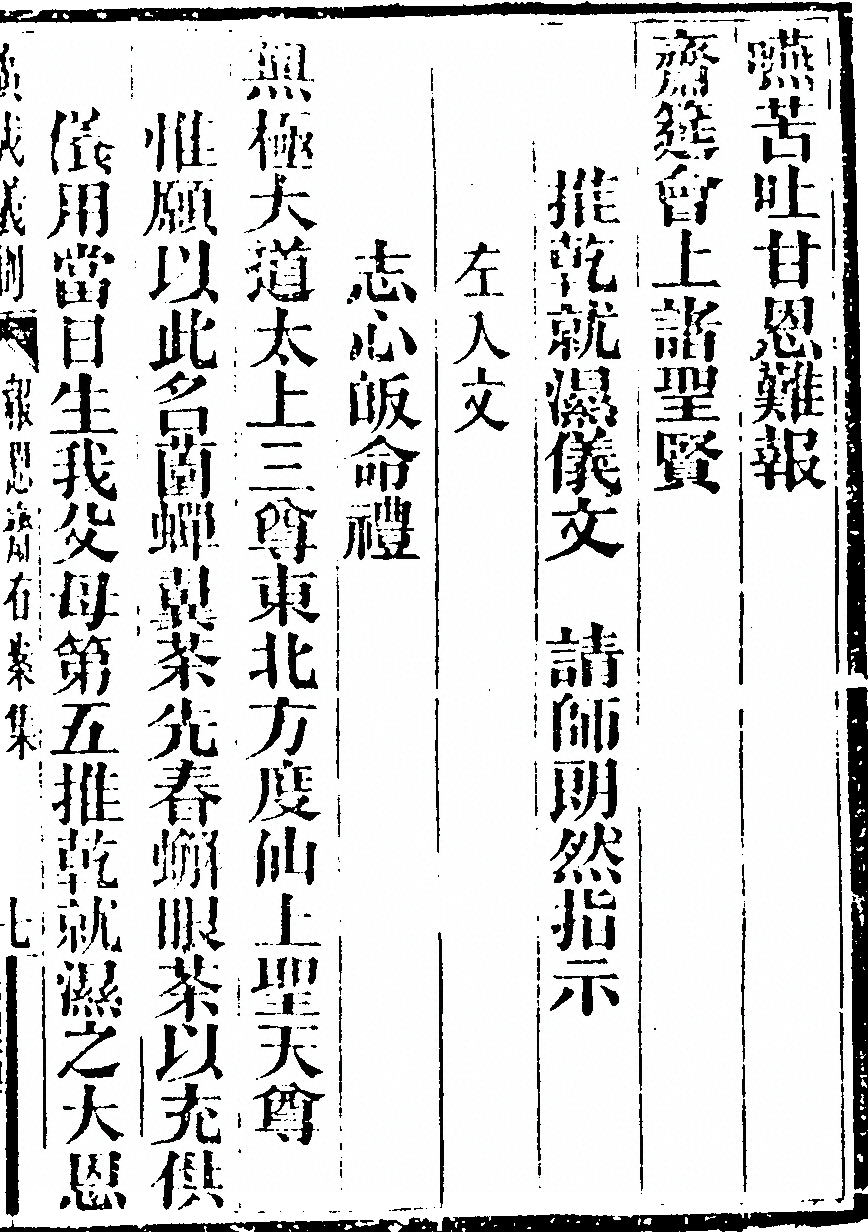 嚥苦吐甘恩難報
齋筵會上諸聖賢
推乾就濕儀文　請師朗然指示
左人文
志心皈命禮
無極大道太上三尊東北方度仙上聖天尊
惟願以此名葘蟬翼茶先春蠏眼茶以充供
儀用當日生我父母第五推乾就濕之大恩
儀制　報恩齋右案集　七